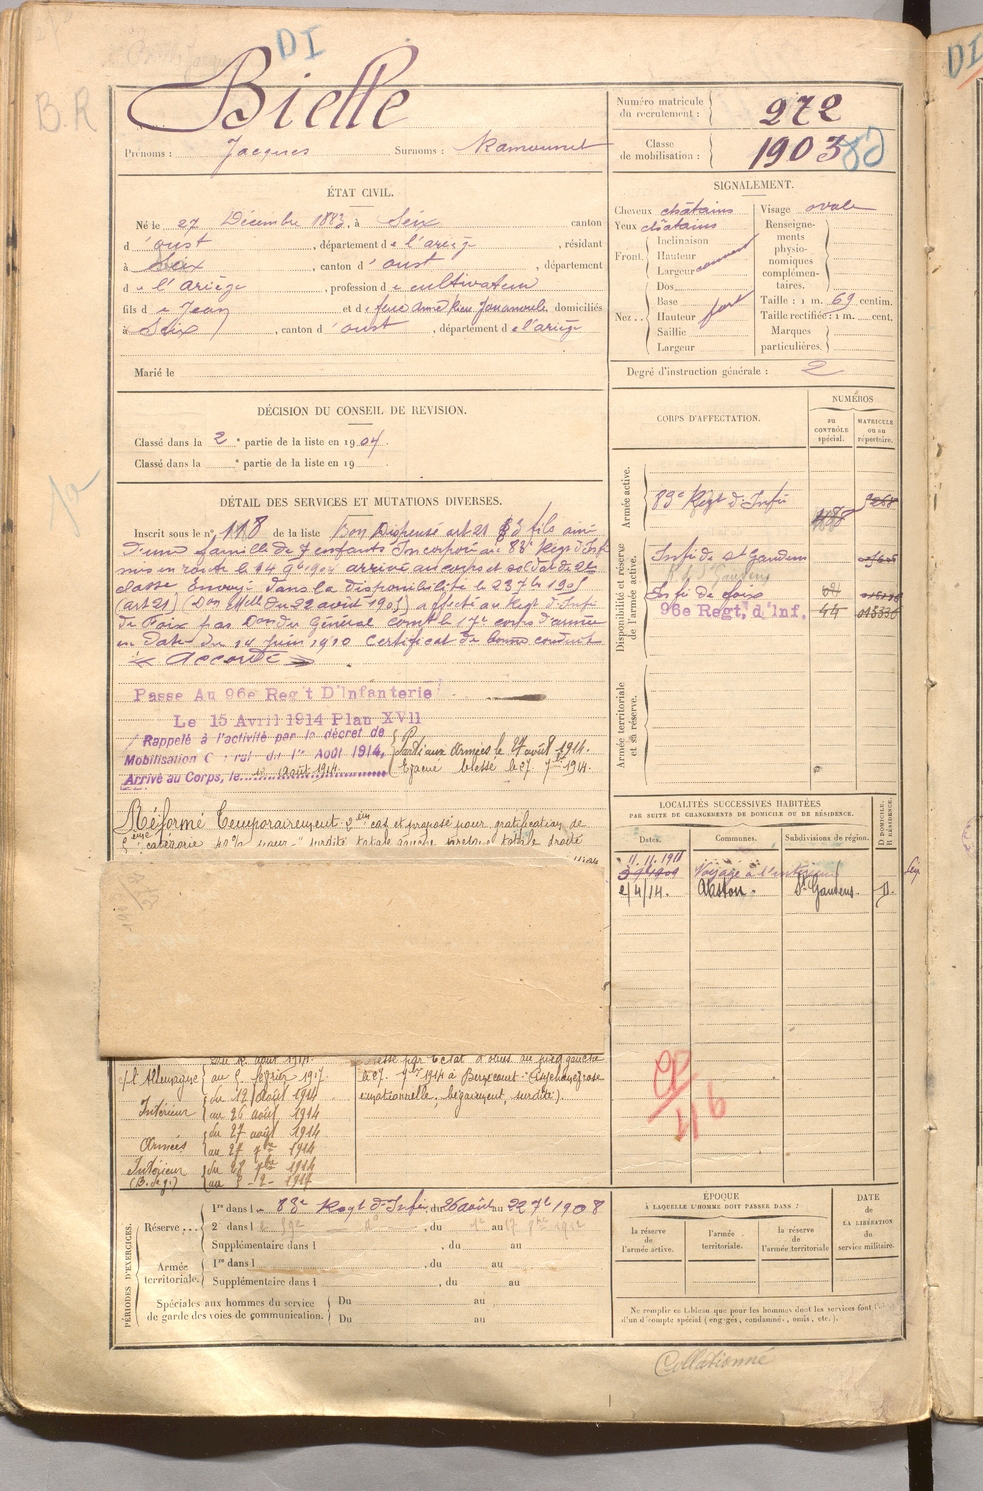 DI
B.R
Bielle
Prénoms : Jacques Surnoms : Ramounet
Numéro matricule du recrutement : 272
Classe de mobilisation : 1903
ÉTAT CIVIL.
Né le 27 Décembre 1883, à Seix canton
d'oust, département de l'ariège, résidant
à Seix, canton d'oust, département
de l'ariège, profession de cultivateur
fils de Jean et de feue anne domiciliés
à Seix, canton d'oust, département de l'ariège
Marié le
SIGNALEMENT.
Cheveux châtains Visage ovale
Yeux châtains
Front. Inclinaison
Hauteur
Largeur
Nez.. Dos
Base fort
Hauteur
Saillie
Largeur
Renseignements physionomiques complémentaires.
Taille : 1 m. 69 centim.
Taille rectifiée : 1 m. cent.
Marques particulières.
Degré d'instruction générale : 2
DÉCISION DU CONSEIL DE REVISION.
Classé dans la 2e partie de la liste en 1904.
Classé dans la e partie de la liste en 19
CORPS D'AFFECTATION.
NUMÉROS
au CONTRÔLE spécial.
MATRICULE ou au répertoire.
Armée active.
83e Régt d'Infie
Disponibilité et réserve de l'armée active.
Infie de St Gaudens
Infie de foix
96e Regt, d'Inf. 44
Armée territoriale et sa réserve.
DÉTAIL DES SERVICES ET MUTATIONS DIVERSES.
Inscrit sous le n° 118 de la liste Bon Dispensé art 21 § 3 fils ainé
d'une famille de 7 enfants Incorporé au 83e Régt d'Infie
mis en route le 14 9bre 1904 arrivé au corps et soldat de 2e
classe Envoyé dans la disponibilité le 23 7bre 1905
(art 21) (Don Mlle du 22 août 1905) affecté au Régt d'Infie
de Foix par Don du Général Comt le 17e corps d'armée
en date du 14 Juin 1910 Certificat de bonne conduite
accordé
Passe Au 96e Reg't D'Infanterie
Le 15 Avril 1914 Plan XVII
Rappelé à l'activité par le décret de
Mobilisation du 1er Août 1914,
Arrivé au Corps, le août 1914
Parti aux Armées le 27 août 1914.
Evacué blessé le 27 7bre 1914.
Réformé Temporairement 2ème cas et proposé pour gratification de
catégorie 40% pour surdité totale gauche presque totale droite
LOCALITÉS SUCCESSIVES HABITÉES
PAR SUITE DE CHANGEMENTS DE DOMICILE OU DE RÉSIDENCE.
Dates. Communes. Subdivisions de région. D DOMICILE. R RÉSIDENCE.
11.11.1911 Voyage à l'intérieur
2/4/14. St Gaudens. D.
c/ l'Allemagne du 12 août 1914.
au 5 février 1917
Intérieur du 12 août 1914
au 26 août 1914
Armées du 27 août 1914
au 27 7bre 1914
Intérieur du 28 7bre 1914
au 5-2-1917
Blessé par Eclat d'obus au pied gauche
le 27 7bre 1914 à
émotionnelle, bégaiement, surdité).
116
PÉRIODES D'EXERCICES.
Réserve... 1re dans le 83e Régt d'Infie, du 26 août au 22 7bre 1908
2e dans l , du au
Supplémentaire dans l , du au
Armée territoriale. 1re dans l , du au
Supplémentaire dans l , du au
Spéciales aux hommes du service de garde des voies de communication. Du au
Du au
ÉPOQUE
À LAQUELLE L'HOMME DOIT PASSER DANS :
la réserve de l'armée active.
l'armée territoriale.
la réserve de l'armée territoriale
DATE DE LA LIBÉRATION du service militaire.
Ne remplir ce tableau que pour les hommes dont les services font
d'un décompte spécial (engagés, condamnés, omis, etc.).
Collationné
DI